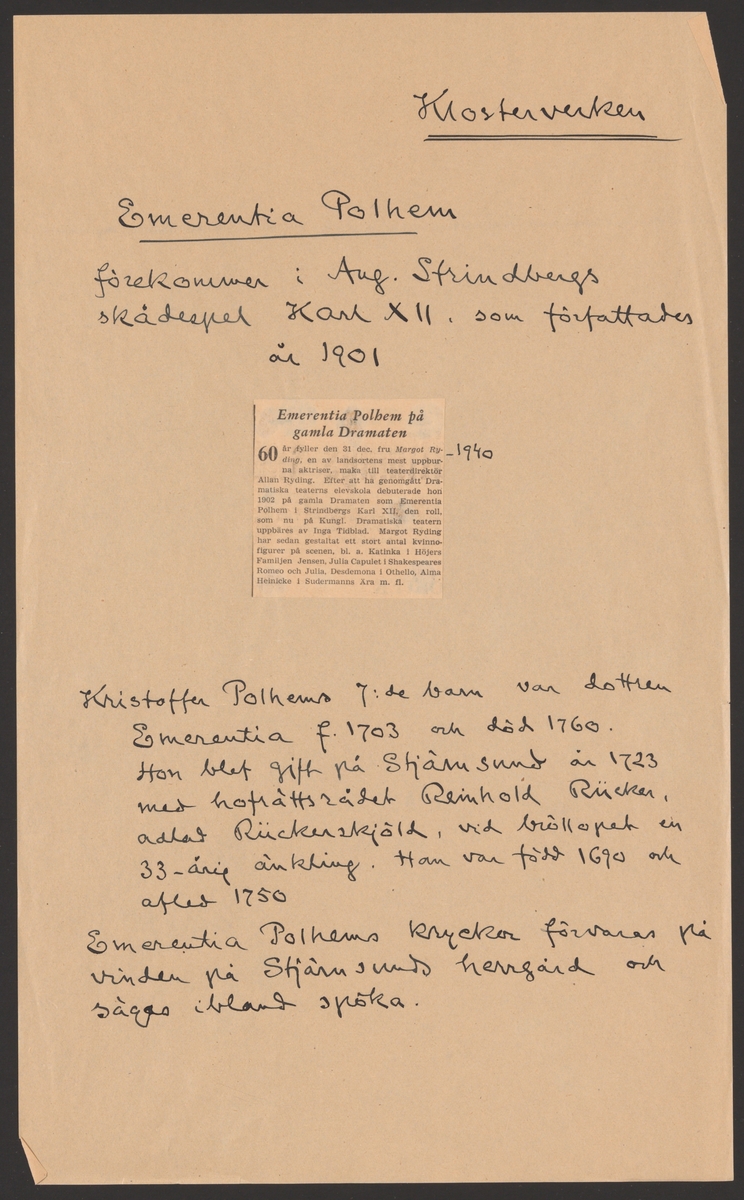 Klosterverken
Emerentia Polhem
förekommer i Aug. Strindbergs
skådespel Karl XII. som författades
år 1901
Emerentia Polhem på
gamla Dramaten
60 år fyller den 31 dec. fru Margot Ry-
ding, en av landsortens mest uppbur-
na aktriser, maka till teaterdirektör
Allan Ryding. Efter att ha genomgått Dra-
matiska teaterns elevskola debuterade hon
1902 på gamla Dramaten som Emerentia
Polhem i Strindbergs Karl XII, den roll,
som nu på Kungl. Dramatiska teatern
uppbäres av Inga Tidblad. Margot Ryding
har sedan gestaltat ett stort antal kvinno-
figurer på scenen, bl. a. Katinka i Höjers
Familjen Jensen, Julia Capulet i Shakespeares
Romeo och Julia, Desdemona i Othello, Alma
Heinicke i Sudermanns Ära m. fl.
-1940
Kristoffer Polhems 7:de barn var dottren
Emerentia f. 1703 och död 1760.
Hon blef gift på Stjärnsund år 1723
med hofrättsrådet Reinhold Rücker,
adlad Rückerskjöld, vid bröllopet en
33-årig änkling. Han var född 1690 och
afled 1750
Emerentia Polhems kryckor förvaras på
vinden på Stjärnsunds herrgård och
sägas ibland spöka.